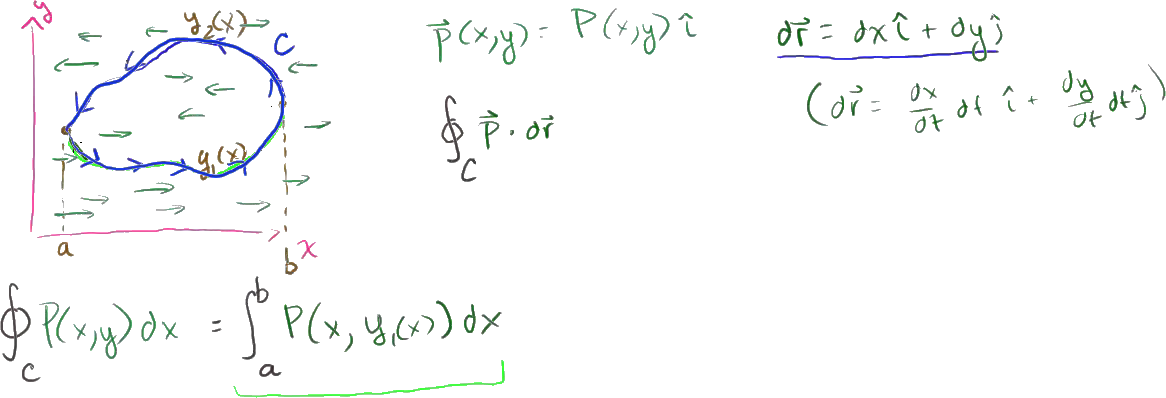 y
y₂(x)
C
y₁(x)
a
b
x
p⃗(x,y) = P(x,y) î
∮_C p⃗ · dr⃗
dr⃗ = dx î + dy ĵ
(dr⃗ = dx/dt dt î + dy/dt dt ĵ)
∮_C P(x,y) dx = ∫_a^b P(x, y₁(x)) dx